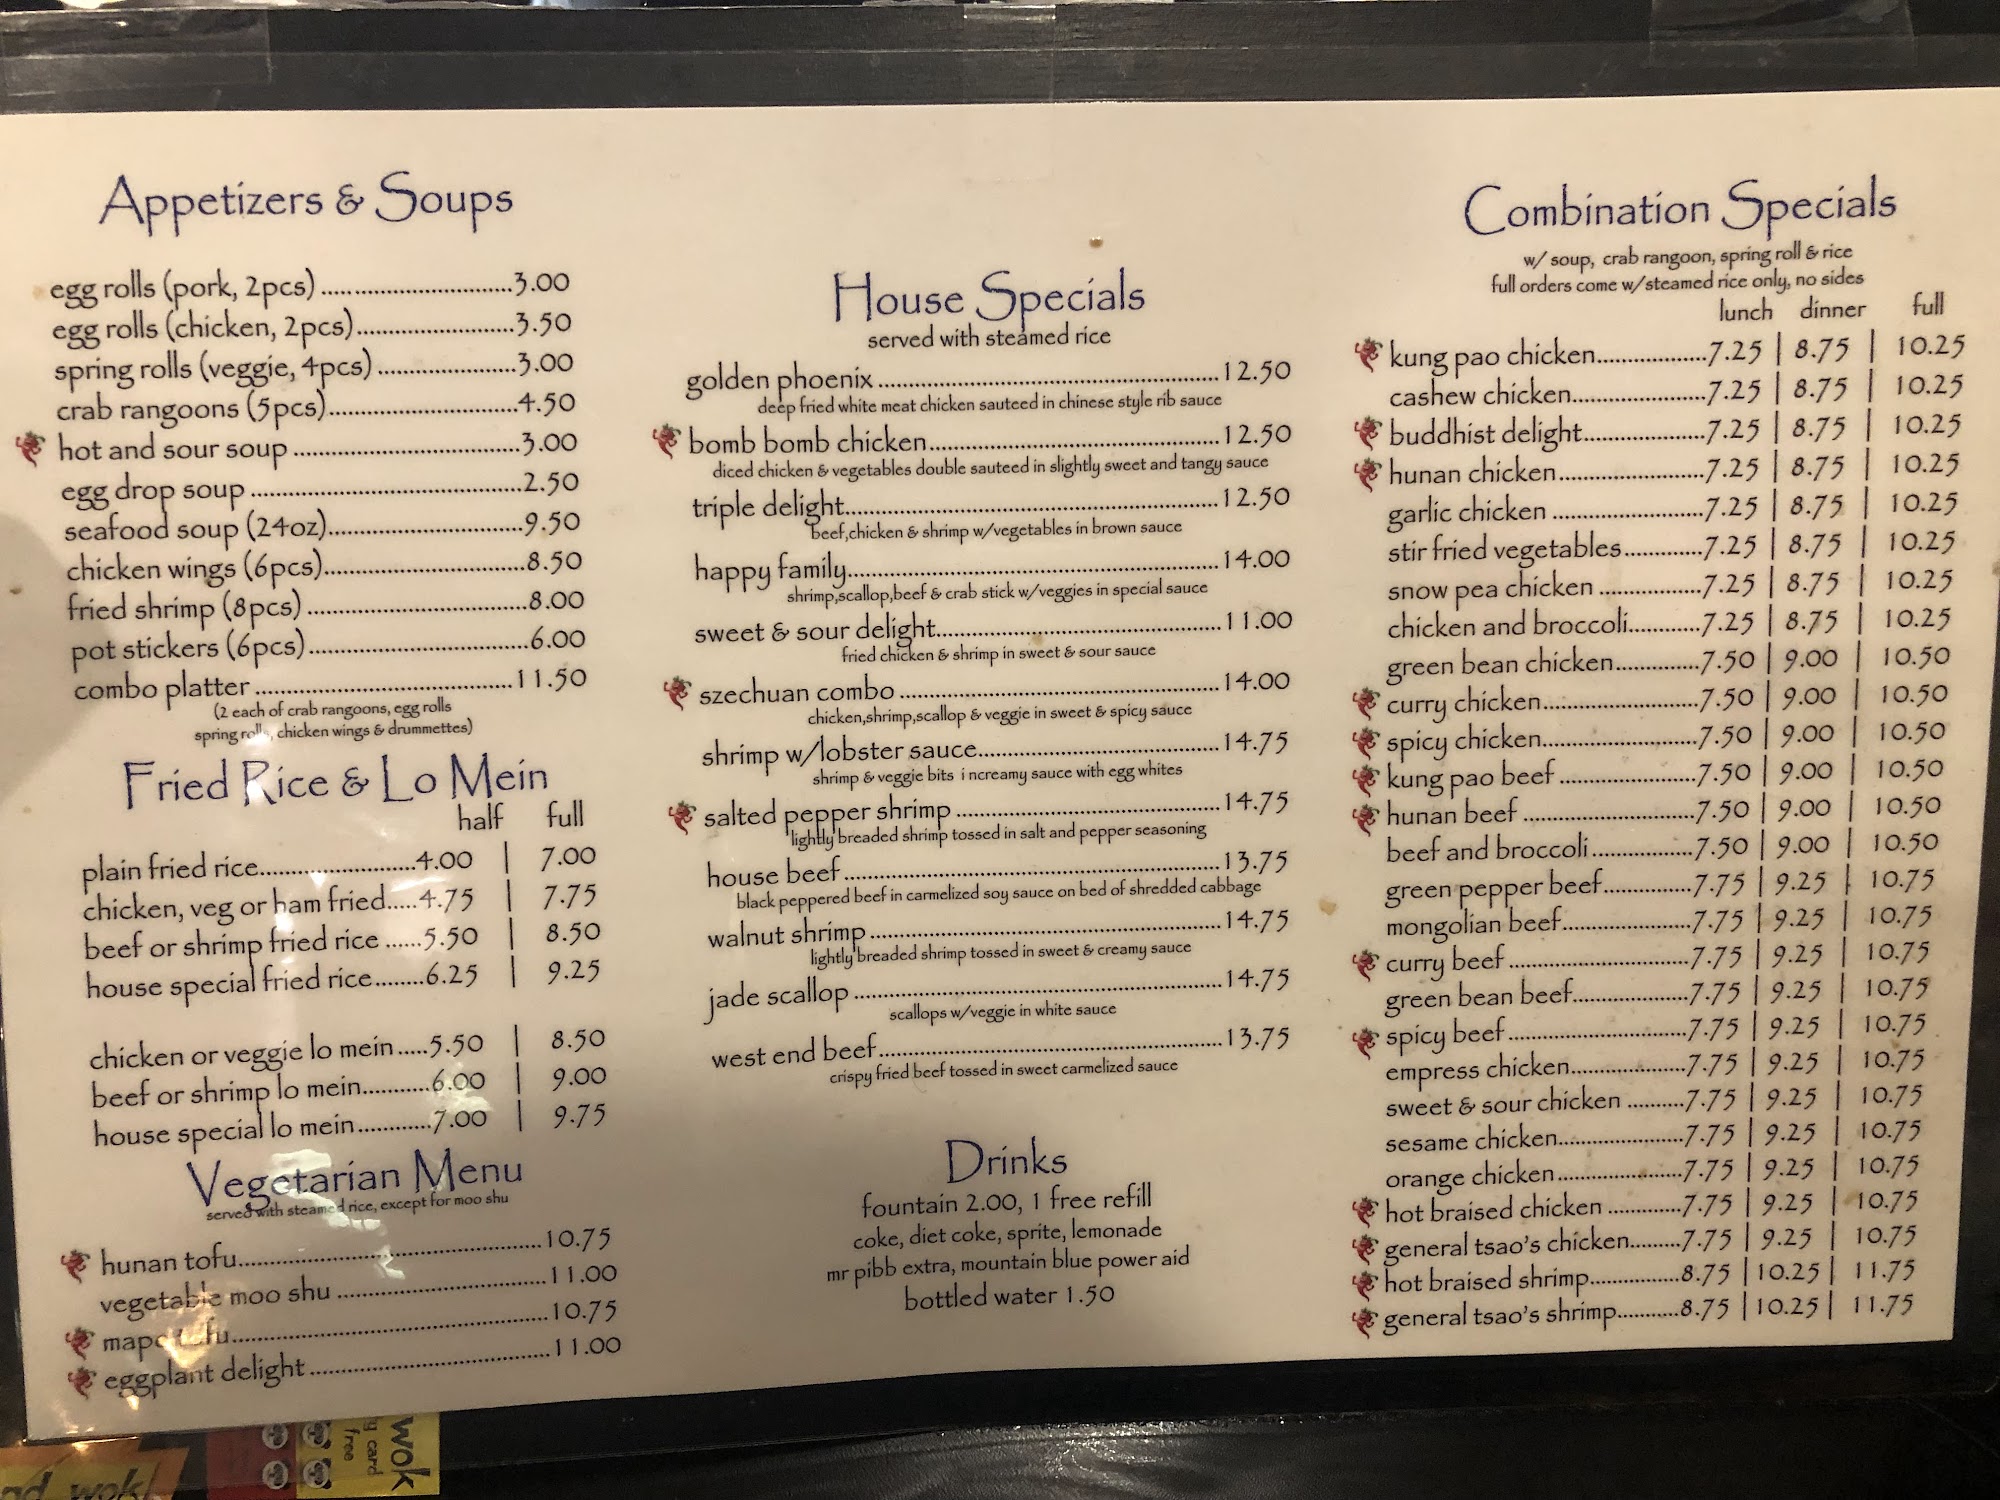 Appetizers & Soups
egg rolls (pork, 2pcs).............................3.00
egg rolls (chicken, 2pcs).......................3.50
spring rolls (veggie, 4pcs).....................3.00
crab rangoons (5pcs)............................4.50
hot and sour soup..................................3.00
egg drop soup........................................2.50
seafood soup (24oz).............................9.50
chicken wings (6pcs)..............................8.50
fried shrimp (8pcs).................................8.00
pot stickers (6pcs).................................6.00
combo platter.......................................11.50
(2 each of crab rangoons, egg rolls
spring rolls, chicken wings & drummettes)
Fried Rice & Lo Mein
half full
plain fried rice.......................4.00 | 7.00
chicken, veg or ham fried.....4.75 | 7.75
beef or shrimp fried rice......5.50 | 8.50
house special fried rice........6.25 | 9.25
chicken or veggie lo mein.....5.50 | 8.50
beef or shrimp lo mein..........6.00 | 9.00
house special lo mein............7.00 | 9.75
Vegetarian Menu
served with steamed rice, except for moo shu
hunan tofu.............................................10.75
vegetable moo shu...............................11.00
mapo tofu..............................................10.75
eggplant delight....................................11.00
House Specials
served with steamed rice
golden phoenix...................................................12.50
deep fried white meat chicken sauteed in chinese style rib sauce
bomb bomb chicken...........................................12.50
diced chicken & vegetables double sauteed in slightly sweet and tangy sauce
triple delight........................................................12.50
beef,chicken & shrimp w/vegetables in brown sauce
happy family........................................................14.00
shrimp,scallop,beef & crab stick w/veggies in special sauce
sweet & sour delight...........................................11.00
fried chicken & shrimp in sweet & sour sauce
szechuan combo................................................14.00
chicken,shrimp,scallop & veggie in sweet & spicy sauce
shrimp w/lobster sauce....................................14.75
shrimp & veggie bits i ncreamy sauce with egg whites
salted pepper shrimp........................................14.75
lightly breaded shrimp tossed in salt and pepper seasoning
house beef.........................................................13.75
black peppered beef in carmelized soy sauce on bed of shredded cabbage
walnut shrimp.....................................................14.75
lightly breaded shrimp tossed in sweet & creamy sauce
jade scallop........................................................14.75
scallops w/veggie in white sauce
west end beef....................................................13.75
crispy fried beef tossed in sweet carmelized sauce
Drinks
fountain 2.00, 1 free refill
coke, diet coke, sprite, lemonade
mr pibb extra, mountain blue power aid
bottled water 1.50
Combination Specials
w/ soup, crab rangoon, spring roll & rice
full orders come w/steamed rice only, no sides
lunch dinner full
kung pao chicken................7.25 | 8.75 | 10.25
cashew chicken....................7.25 | 8.75 | 10.25
buddhist delight...................7.25 | 8.75 | 10.25
hunan chicken......................7.25 | 8.75 | 10.25
garlic chicken.......................7.25 | 8.75 | 10.25
stir fried vegetables............7.25 | 8.75 | 10.25
snow pea chicken................7.25 | 8.75 | 10.25
chicken and broccoli...........7.25 | 8.75 | 10.25
green bean chicken.............7.50 | 9.00 | 10.50
curry chicken.......................7.50 | 9.00 | 10.50
spicy chicken.......................7.50 | 9.00 | 10.50
kung pao beef.....................7.50 | 9.00 | 10.50
hunan beef..........................7.50 | 9.00 | 10.50
beef and broccoli................7.50 | 9.00 | 10.50
green pepper beef..............7.75 | 9.25 | 10.75
mongolian beef...................7.75 | 9.25 | 10.75
curry beef............................7.75 | 9.25 | 10.75
green bean beef..................7.75 | 9.25 | 10.75
spicy beef............................7.75 | 9.25 | 10.75
empress chicken.................7.75 | 9.25 | 10.75
sweet & sour chicken.........7.75 | 9.25 | 10.75
sesame chicken...................7.75 | 9.25 | 10.75
orange chicken...................7.75 | 9.25 | 10.75
hot braised chicken............7.75 | 9.25 | 10.75
general tsao's chicken........7.75 | 9.25 | 10.75
hot braised shrimp..............8.75 | 10.25 | 11.75
general tsao's shrimp.........8.75 | 10.25 | 11.75
wok
card
free
wok!